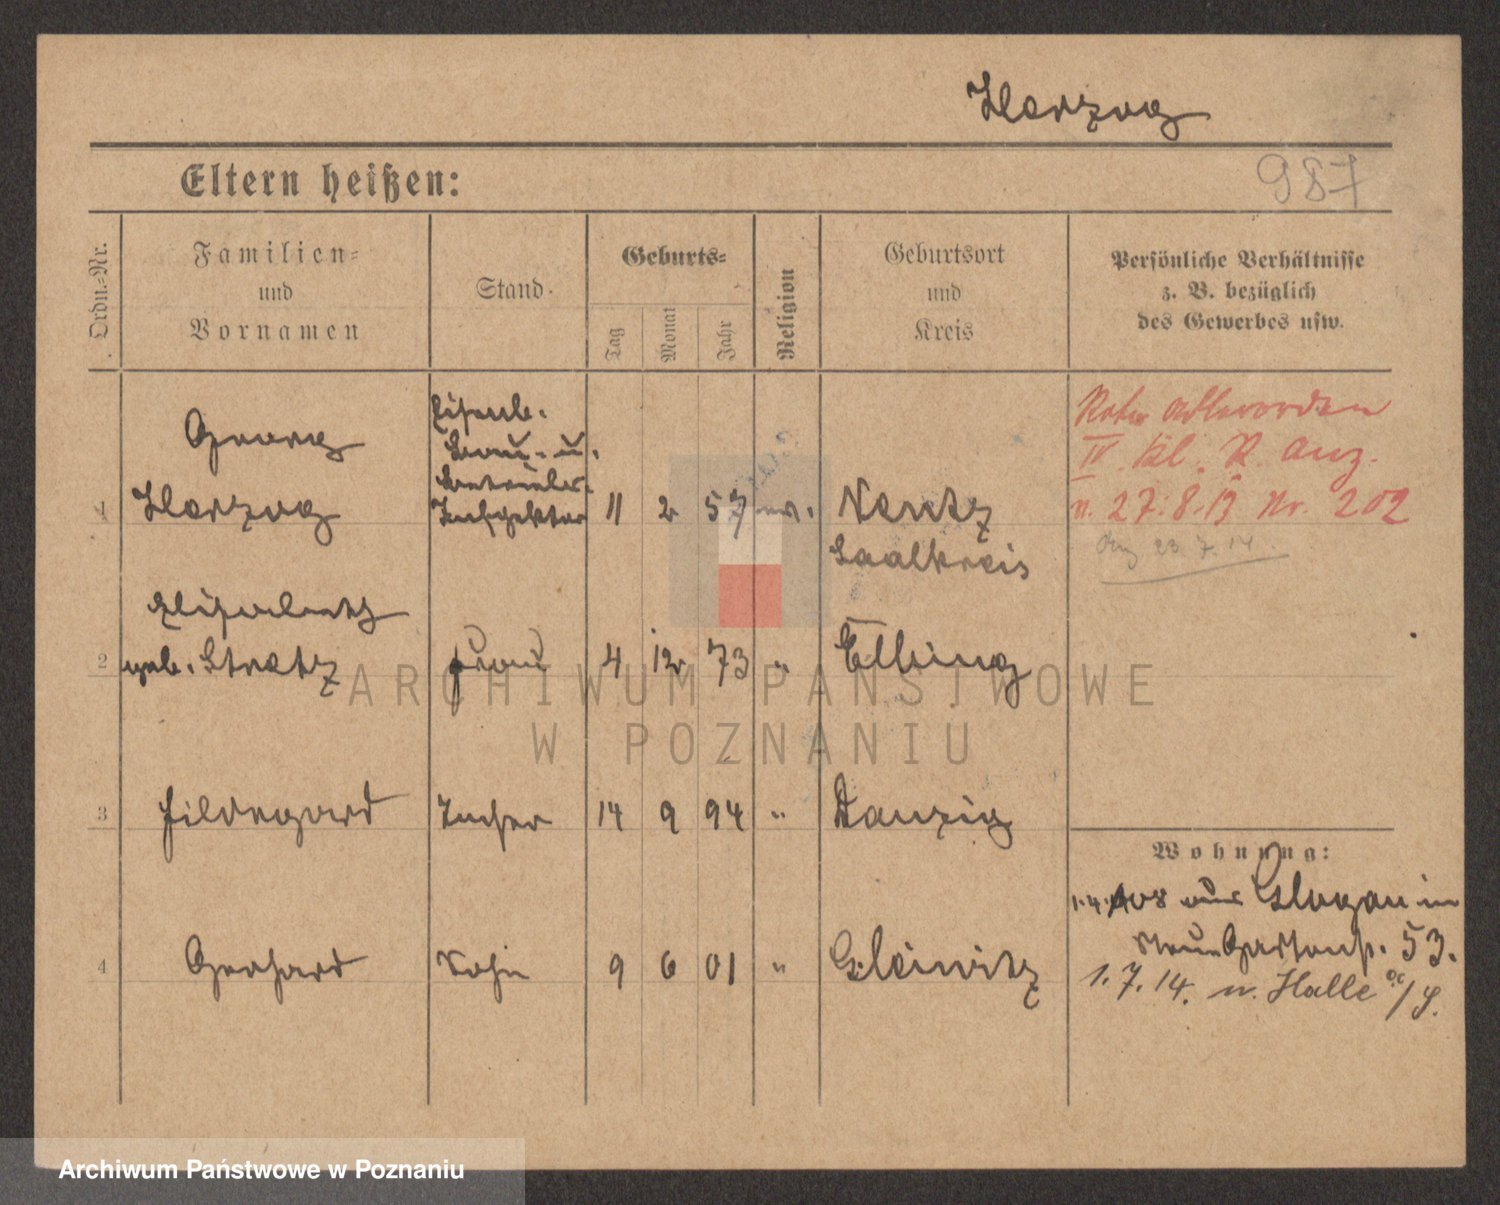 Herzog
Eltern heißen:
987
Ordn.-Nr.
Familien-
und
Vornamen
Stand.
Geburts-
Tag
Monat
Jahr
Religion
Geburtsort
und
Kreis
Persönliche Verhältnisse
z. B. bezüglich
des Gewerbes usw.
1
Georg
Herzog
Eisenb.
Bau- u.
Betriebs-
Inspektor
11 2 57 ev.
Saalkreis
Roter Adlerorden
IV. Kl. R. Anz.
v. 27.8.13 Nr. 202
23.7.14
2
Elisabeth
geb. Stretz
Frau
4 12 73 "
Elbing
3
Hildegard
Tochter
14 9 94 "
Danzig
Wohnung:
1.4.08 aus Glogau in
Neue Gartenst. 53.
4
Gerhard
Sohn
9 6 01 "
Gleiwitz
1.7.14. n. Halle a/S.
ARCHIWUM PAŃSTWOWE
W POZNANIU
Archiwum Państwowe w Poznaniu